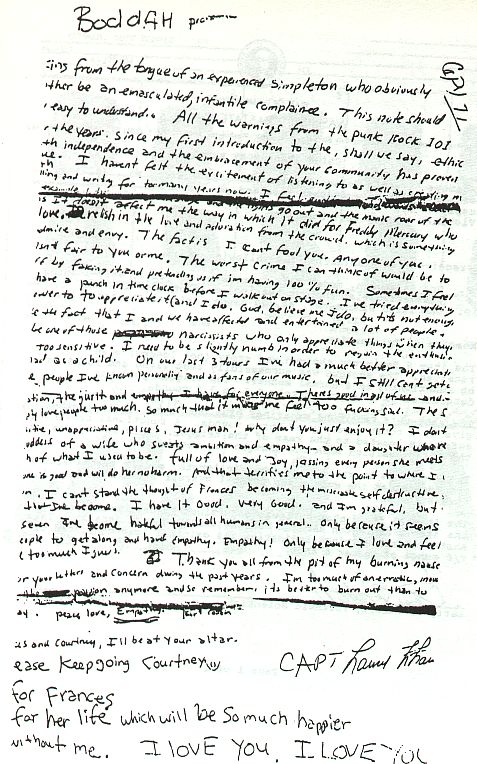 BoddAH
ing from the tongue of an experienced simpleton who obviously
ther be an emasculated, infantile complainee. This note should
easy to understand.. All the warnings from the punk Rock 101
r the years. Since my first introduction to the, shall we say, ethic
th independence and the embracement of your community has proven
ue. I havent felt the excitement of listening to as well as creating
and writing for too many years now. I feel
go out and the manic roar of the
it doesnt affect me the way in which it did for freddy Mercury who
love, relish in the love and adoration from the crowd. which is something
admire and envy. The fact is I cant fool you. Any one of you.
isnt fair to you or me. The worst crime I can think of would be to
by faking it and pretending as if im having 100% fun. Sometimes I feel
have a punch in time clock before I walk out on stage. I've tried everything
power to appreciate it (and I do, God, believe me I do, but its not enough
the fact that I and we have affected and entertained a lot of people.
be one of those narcissists who only appreciate things when they
too sensitive. I need to be slightly numb in order to regain the
had as a child. On our last 3 tours I've had a much better
people I've known personally and as fans of our music, but I still cant
the guilt and empathy I have for everyone. Theres good in all of us and
love people too much. So much that it makes me feel too fucking sad. The S
unappreciative, pisces, Jesus man! why dont you just enjoy it? I dont
goddess of a wife who sweats ambition and empathy and a daughter
of what I used to be. full of love and joy, kissing every person she meets
one is good and will do her no harm. And that terrifies me to the point to where I
n. I cant stand the thought of Frances becoming the miserable self destructive,
that Ive become. I have it Good. very Good. and Im grateful, but
seven Ive become hateful towards all humans in general.. Only because it seems
people to get along and have empathy. Empathy! Only because I love and feel
too much I guess.
Thank you all from the pit of my burning nause
or your letters and concern during the past years. I'm too much of an erratic,
passion anymore and so remember, its better to burn out than to
ay. peace love, Empathy.
us and Courtney, I'll be at your altar.
ease Keep going Courtney
for Frances
for her life which will be so much happier
without me. I LOVE YOU. I LOVE YOU